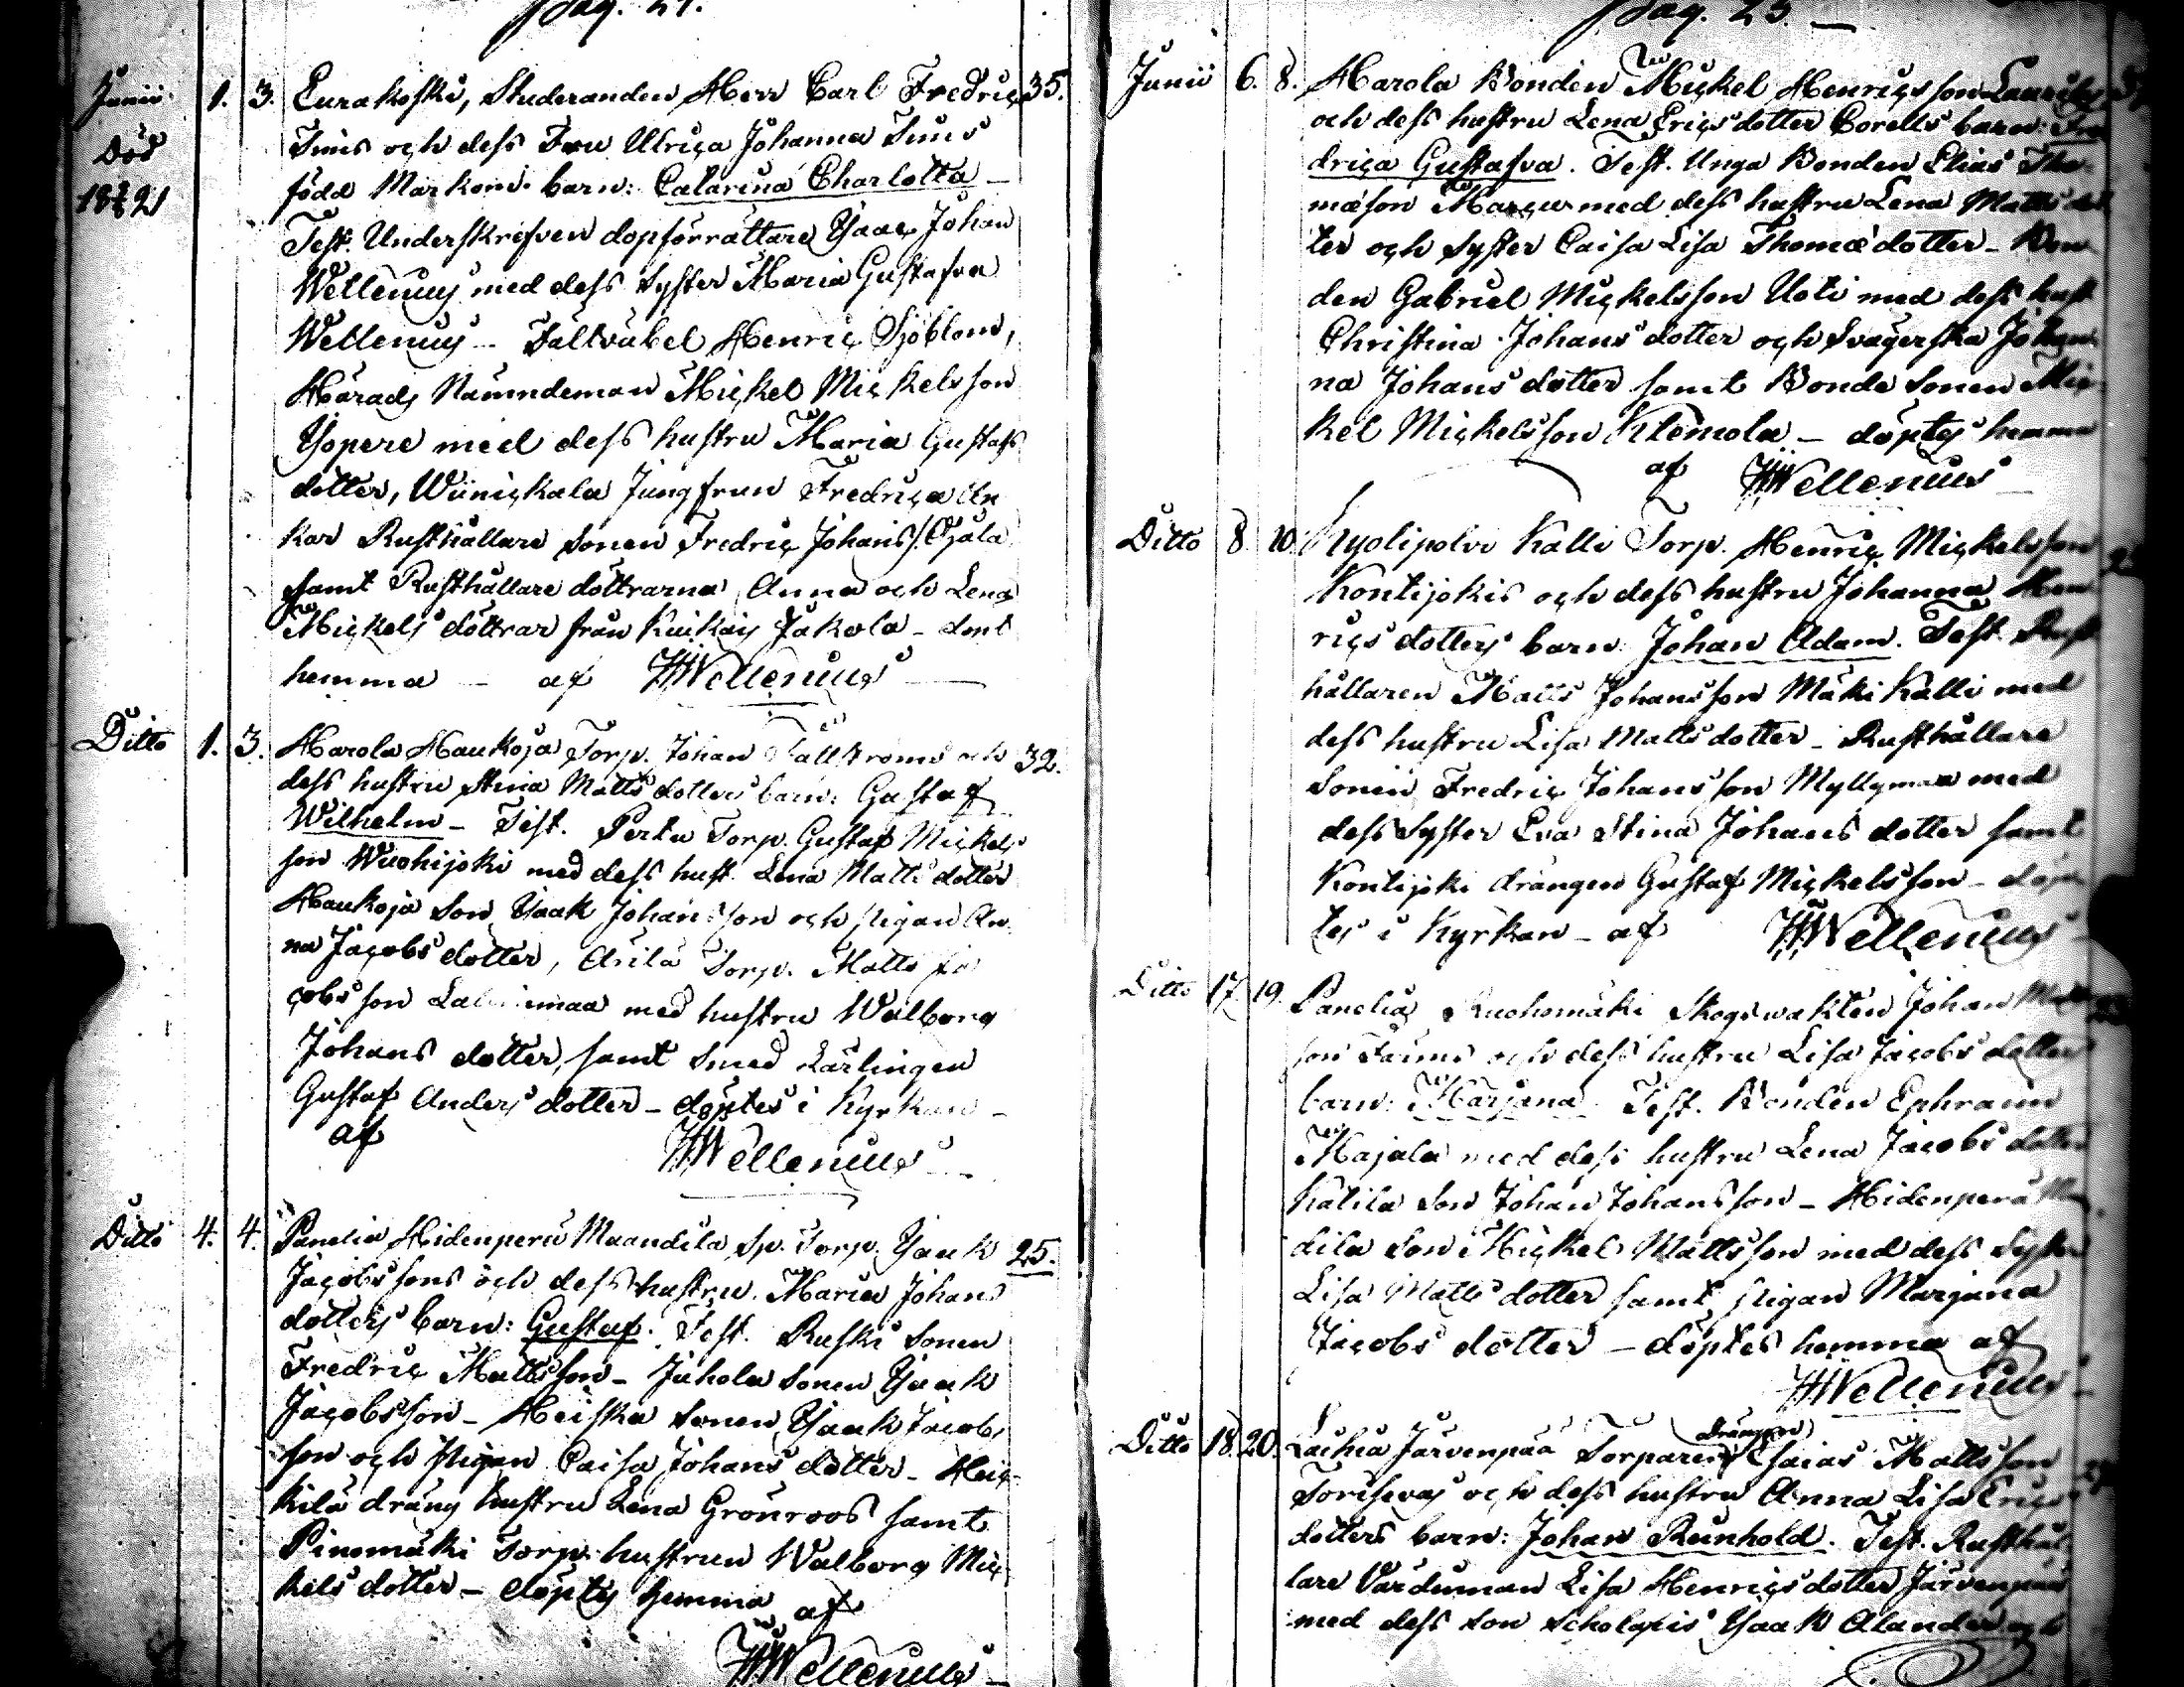 Pag. 24.
Junii 1. 3. Eurakoski, Studeranden Herr Carl Fredric 35.
Död
18 21
och dess Fru Ulrica Johanna
född barn: Catarina Charlotta
Test. Underskrefven dopförrättare Isaac Johan
Wellenius med dess Syster Maria Gustafva
Wellenius - Fältväbel Henric Sjöblom,
Härads Nämndeman Mickel Mickelsson
Yopere med dess hustru Maria Gustafs
dotter, Jungfrun Fredrica An
kar Rusthållare Sonen Fredric Johans s.
samt Rusthållare döttrarna Anna och Lena
Mickels döttrar från Jakola - döpt
hemma - af Wellenius
Ditto 1. 3. Harola Haukoja Torp. Johan och 32.
dess hustru Stina Matts dotters barn: Gustaf
Wilhelm - Test. Pertu Torp. Gustaf Mickels
son Wuohijoki med dess hust. Lena Matts dotter
Haukoja Son Isaak Johansson och pigan An
na Jacobs dotter, Torp. Matts Ja
cobsson med hustru Walborg
Johans dotter, samt Smed Lärlingen
Gustaf Anders dotter - döptes i Kyrkan -
af Wellenius
Ditto 4. 4. Panelia Hidenperä Maandila Sp. Torp. Isaak 25.
Jacobssons och dess hustru Maria Johans
dotters barn: Gustaf. Test. Ruski Sonen
Fredric Mattsson - Juhola Sonen Isaak
Jacobsson - Heiska Sonen Isaak Jacobs
son och pigan Caisa Johans dotter - Hei
kilä dräng hustru Lena Grönroos samt
Pinomäki Torp. hustrun Walborg Mic
kels dotter - döptes hemma af
Wellenius
Pag. 25.
Junii 6. 8. Harola Bonden Mickel Henricsson
och dess hustru Lena Erics dotter Corells barn: Fre
drica Gustafva. Test. Unga Bonden Elias Tho
mæson med dess hustru Lena Matts dot
ter och Syster Caisa Lisa Thomæ dotter - Bon
den Gabriel Mickelsson Uoti med dess hust
Christina Johans dotter och Svägerska Johan
na Johans dotter samt Bonde Sonen Mic
kel Mickelsson Klemola - döptes hemma
af Wellenius
Ditto 8. 10. Kyolipolvi Kalli Torp. Henric Mickelsson
Kontijokis och dess hustru Johanna Hen
rics dotters barn: Johan Adam. Test. Rust
hållaren Matts Johansson Mäki Kalli med
dess hustru Lisa Matts dotter - Rusthållare
Sonen Fredric Johansson Myllymaa med
dess Syster Eva Stina Johans dotter samt
Kontijoki drängen Gustaf Mickelsson - döp
tes i Kyrkan - af Wellenius
Ditto 17. 19. Panelia Ruohomäki Skogswakten Johan
son och dess hustru Lisa Jacobs dotter
barn: Marjana. Test. Bonden Ephraim
Majala med dess hustru Lena Jacobs dotter
Katila Son Johan Johansson - Hidenperä
dila Son Mickel Mattsson med dess Syster
Lisa Matts dotter samt pigan Marjana
Jacobs dotter - döptes hemma af
Wellenius
Ditto 18. 20. Järvenpää Torparen drängen Esaias Mattsson
och dess hustru Anna Lisa Erics
dotters barn: Johan Reinhold. Test. Rusthål
lare Värduman Lisa Henrics dotter Järvenpää
med dess Son Scholaris Isaak Alander och